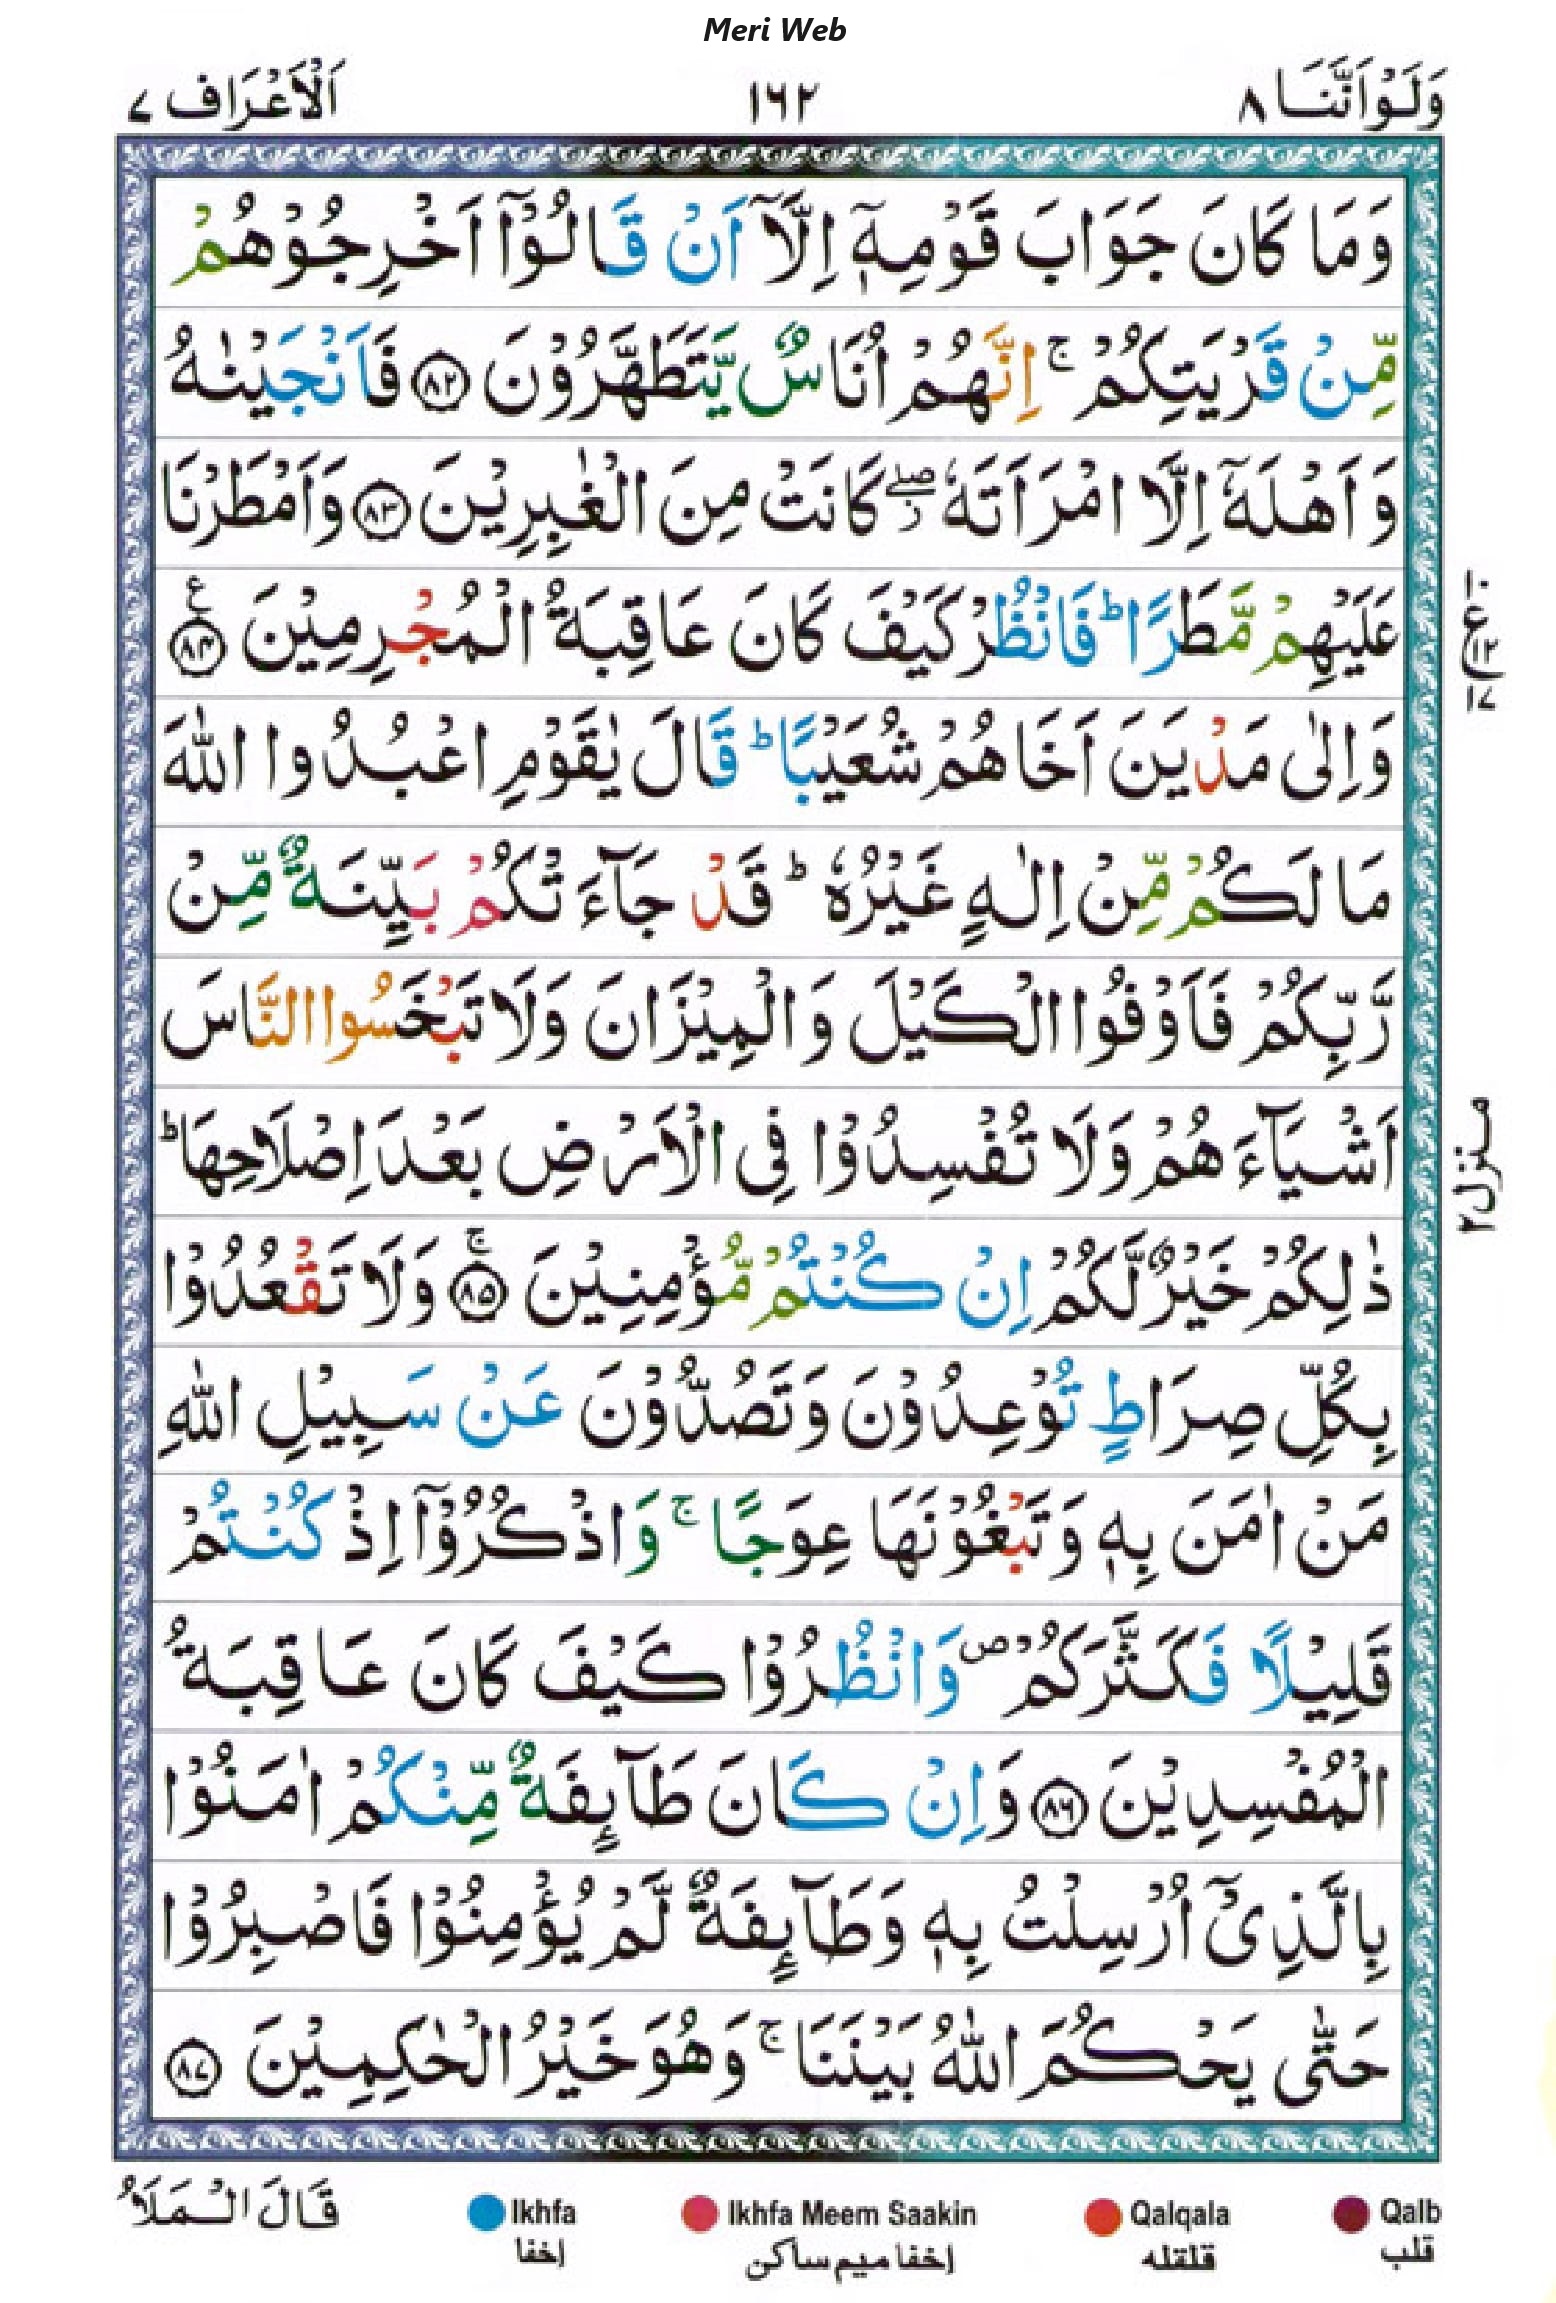 Meri Web
وَلَوْاَنَّنَا ٨ ١٦٢ اَلْاَعْرَاف ٧
وَمَا كَانَ جَوَابَ قَوْمِهٖۤ اِلَّاۤ اَنْ قَالُوْۤا اَخْرِجُوْهُمْ
مِّنْ قَرْيَتِكُمْ ۚ اِنَّهُمْ اُنَاسٌ يَّتَطَهَّرُوْنَ ﴿٨٢﴾ فَاَنْجَيْنٰهُ
وَاَهْلَهٗۤ اِلَّا امْرَاَتَهٗ ۖ كَانَتْ مِنَ الْغٰبِرِيْنَ ﴿٨٣﴾ وَاَمْطَرْنَا
عَلَيْهِمْ مَّطَرًا ؕ فَانْظُرْ كَيْفَ كَانَ عَاقِبَةُ الْمُجْرِمِيْنَ ﴿٨٤﴾ ع
١٠ ع ١٢ ١٧
وَاِلٰى مَدْيَنَ اَخَاهُمْ شُعَيْبًا ؕ قَالَ يٰقَوْمِ اعْبُدُوا اللّٰهَ
مَا لَكُمْ مِّنْ اِلٰهٍ غَيْرُهٗ ؕ قَدْ جَآءَتْكُمْ بَيِّنَةٌ مِّنْ
رَّبِّكُمْ فَاَوْفُوا الْكَيْلَ وَالْمِيْزَانَ وَلَا تَبْخَسُوا النَّاسَ
اَشْيَآءَهُمْ وَلَا تُفْسِدُوْا فِى الْاَرْضِ بَعْدَ اِصْلَاحِهَا ؕ
منزل ٢
ذٰلِكُمْ خَيْرٌ لَّكُمْ اِنْ كُنْتُمْ مُّؤْمِنِيْنَ ۚ ﴿٨٥﴾ وَلَا تَقْعُدُوْا
بِكُلِّ صِرَاطٍ تُوْعِدُوْنَ وَتَصُدُّوْنَ عَنْ سَبِيْلِ اللّٰهِ
مَنْ اٰمَنَ بِهٖ وَتَبْغُوْنَهَا عِوَجًا ۚ وَاذْكُرُوْۤا اِذْ كُنْتُمْ
قَلِيْلًا فَكَثَّرَكُمْ ۪ وَانْظُرُوْا كَيْفَ كَانَ عَاقِبَةُ
الْمُفْسِدِيْنَ ﴿٨٦﴾ وَاِنْ كَانَ طَآئِفَةٌ مِّنْكُمْ اٰمَنُوْا
بِالَّذِىْۤ اُرْسِلْتُ بِهٖ وَطَآئِفَةٌ لَّمْ يُؤْمِنُوْا فَاصْبِرُوْا
حَتّٰى يَحْكُمَ اللّٰهُ بَيْنَنَا ۚ وَهُوَ خَيْرُ الْحٰكِمِيْنَ ﴿٨٧﴾
قَالَ الْمَلَاُ
Ikhfa Ikhfa Meem Saakin Qalqala Qalb
إخفا إخفا ميم ساكن قلقله قلب